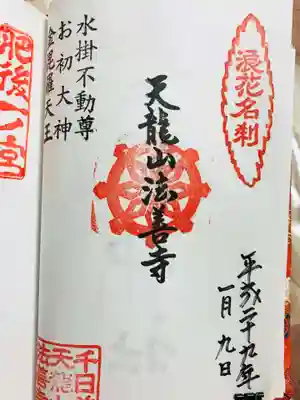 浪花名刹
平成二十九年
一月九日
天龍山法善寺
水掛不動尊
お初大神
金毘羅天王
千日前
天龍山
法善寺
肥後一の宮